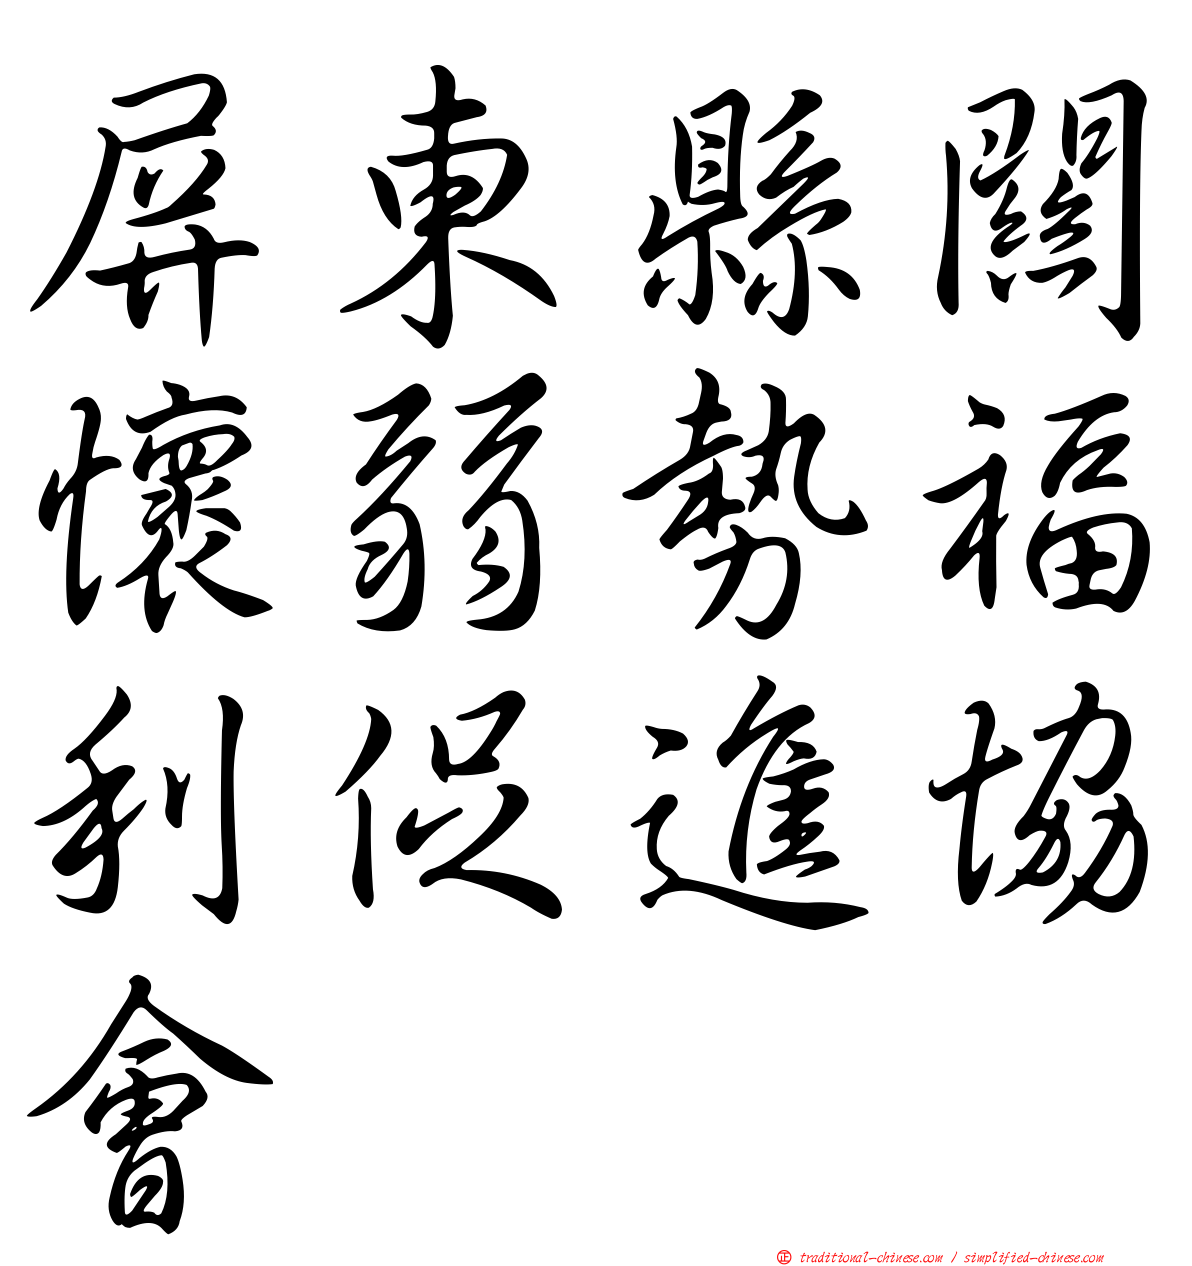 屏東縣關
懷弱勢福
利促進協
會
㊣ traditional-chinese.com / simplified-chinese.com